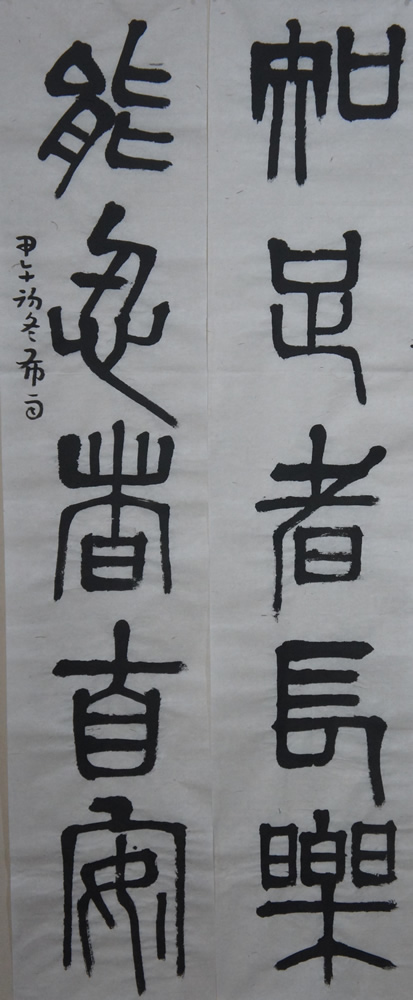 知足者長樂
能忍者自安
甲午初冬希